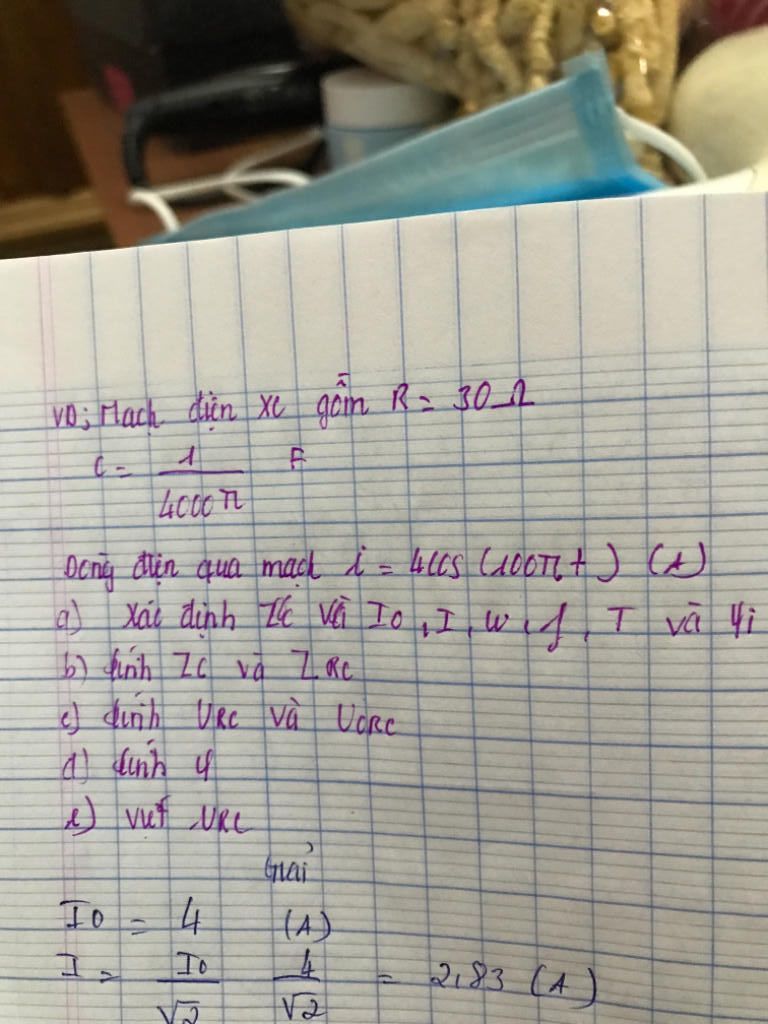 VD: Mạch điện xc gồm R = 30 Ω
C = 1/4000π F
Dòng điện qua mạch i = 4cos (100πt) (A)
a) Xác định ZC và I0, I, W, f, T và φi
b) tính ZC và ZRC
c) tính URC và U0RC
d) tính φ
e) viết URC
Giải
I0 = 4 (A)
I = I0/√2 4/√2 = 2,83 (A)